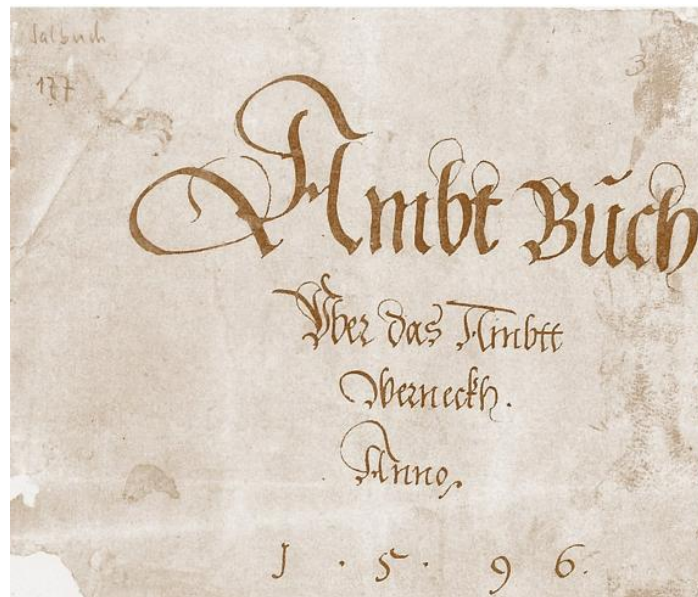 Salbuch
177
3
Ambt Bůch
Vber das Ambtt
Werneckh.
Anno.
1 · 5 · 9 6.